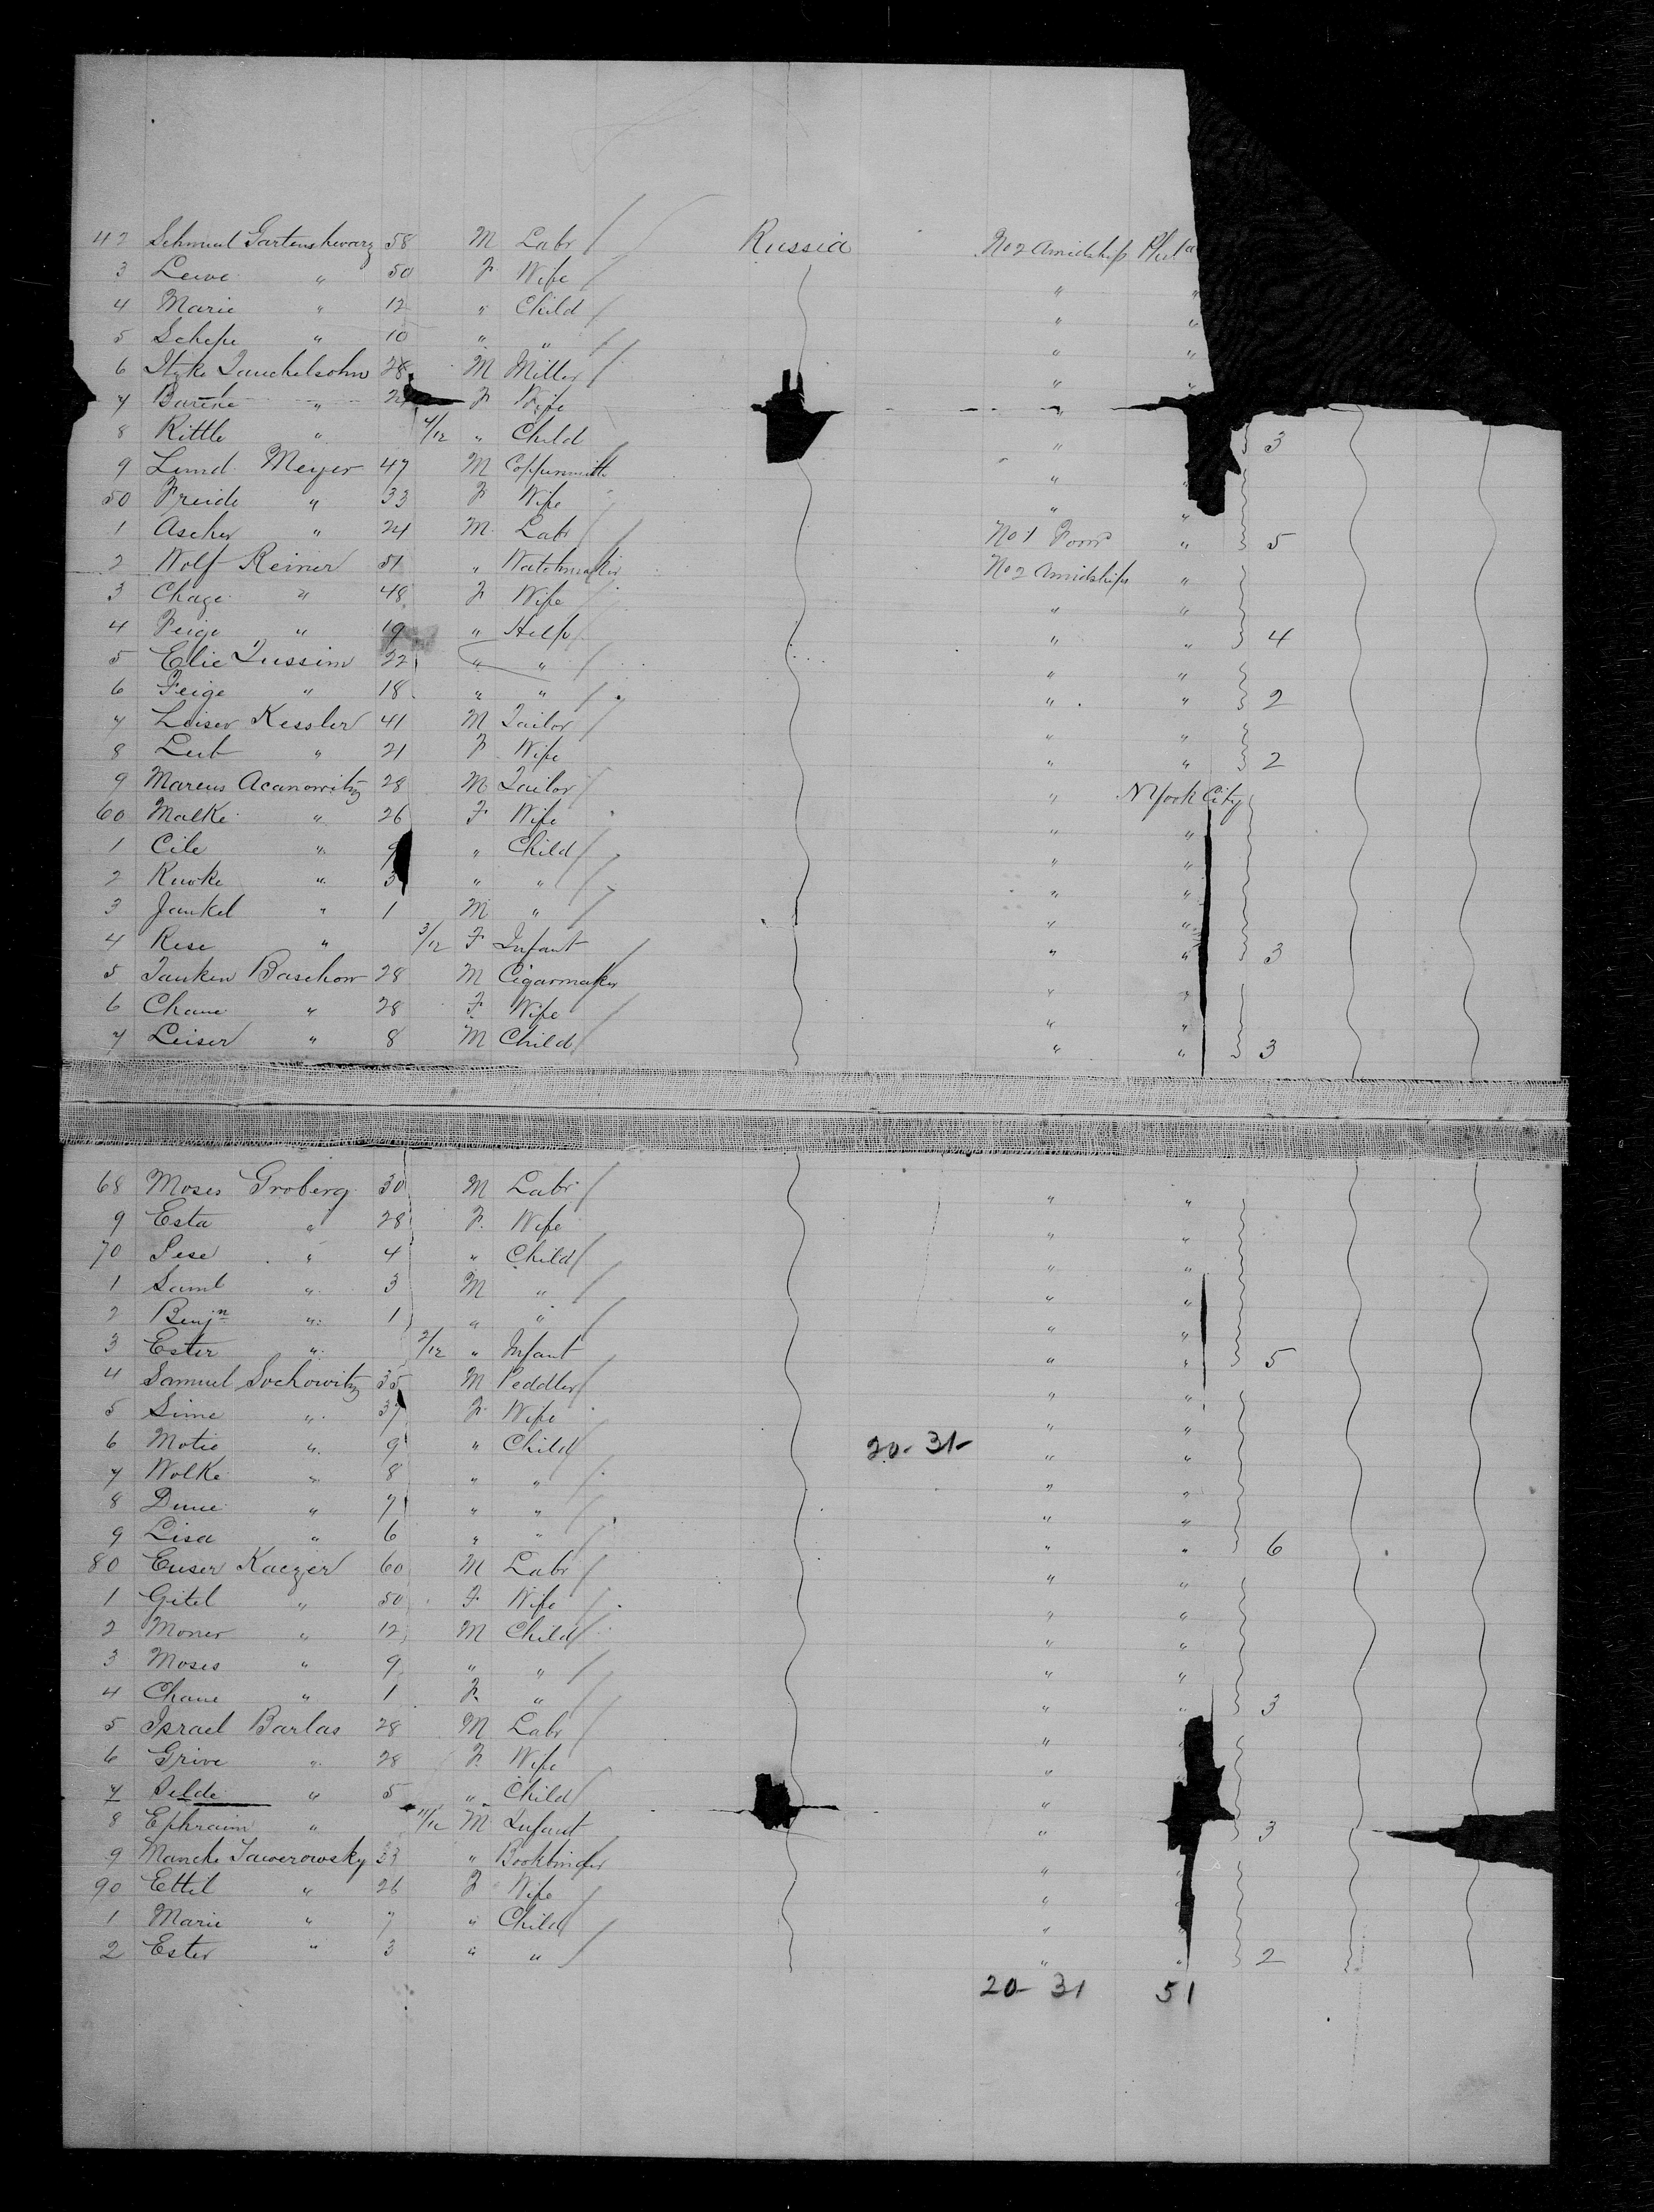 42 Schmul Gartenshwarz 58 M Labr Russia No 2 Amidship Phila
3 Lewe " 50 F Wife " "
4 Marie " 12 " Child " "
5 Schepe " 10 " " " "
6 Itzke Tauchelsohn 28 M Miller " "
7 " F Wife "
8 Rittle " 4/12 " Child " 3
9 Meyer 47 M Coppersmith " "
50 Freide " 33 F Wife " "
1 Ascher " 24 M Labr No 1 Forrd " 5
2 Wolf Reiner 51 " Watchmaker No 2 Amidships "
3 Chage " 48 F Wife " "
4 Feige " 19 " Help " " 4
5 Elie Tussim 22 " " " "
6 Feige " 18 " " " " 2
7 Leiser Kessler 41 M Tailor " "
8 Leib " 21 F Wife " " 2
9 Marcus Acanowitz 28 M Tailor " N York City
60 Malke " 26 F Wife " "
1 Cile " 9 " Child " "
2 Rewke " 3 " " " "
3 Jankel " 1 M " " "
4 Rese " 3/12 F Infant " " 3
5 Tanken Baschow 28 M Cigarmaker " "
6 Chane " 28 F Wife " "
7 Leiser " 8 M Child " " 3
68 Moses Groberg 30 M Labr " "
9 Esta " 28 F Wife " "
70 Pese " 4 " Child " "
1 Saml " 3 M " " "
2 Benjn " 1 " " " "
3 Ester " 2/12 " Infant " " 5
4 Samuel Sochowitz 35 M Peddler " "
5 Sime " 37 F Wife " "
6 Motie " 9 " Child 20-31- " "
7 Wolke " 8 " " " "
8 " 7 " " " "
9 Lisa " 6 " " " " 6
80 Euser Kaczer 60 M Labr " "
1 Gitel " 50 F Wife " "
2 Moner " 12 M Child " "
3 Moses " 9 " " " "
4 Chane " 1 F " " " 3
5 Israel Barlas 28 M Labr " "
6 Grive " 28 F Wife " "
7 " 5 " Child "
8 Ephraim " 11/12 M Infant " 3
9 Manche Jawerowsky 33 " Bookbinder " "
90 Ettel " 26 F Wife "
1 Marie " 7 " Child "
2 Ester " 3 " " " " 2
20-31 51